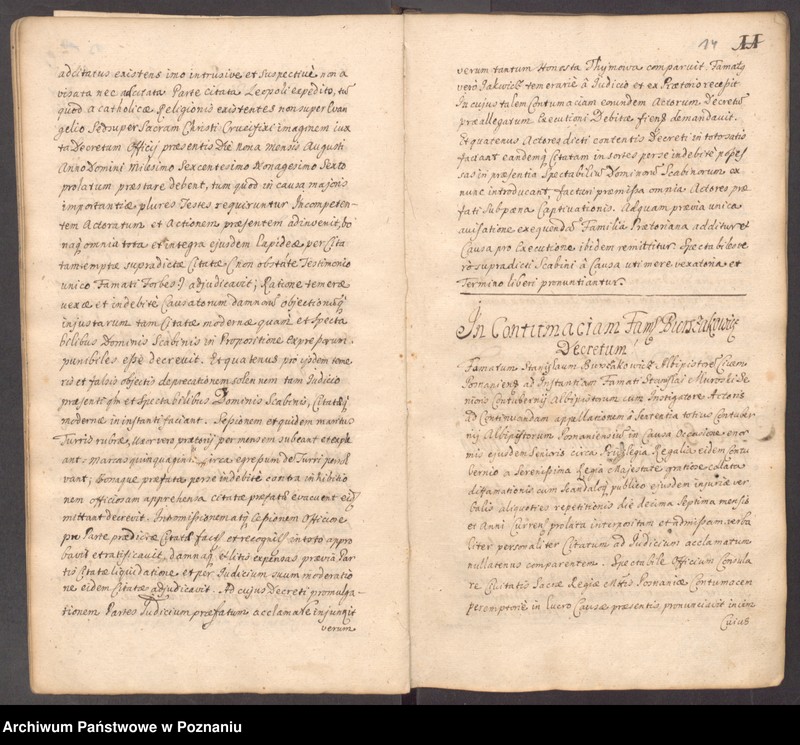 adcitatus existens imo intrusive et suspective non a
visata nec adcitata Parte citata Leopoli expedito, tum
quod a catholicæ Religionis existentes non super Evan
gelio Sed super Sacram Christi Crucifixi imaginem iux
ta Decretum Officij præsentis Die nona Mensis Augusti
Anno Domini Milesimo Sexcentesimo Nonagesimo Sexto
prolatum præstare debent, tum quod in causa majoris
importantiæ plures Testes requiruntur Incompeten-
tem Actoratum et Actionem præsentem adinvenit, bo
naque omnia tota et integra ejusdem Lapideæ per Cita
tam empta supradictæ Citatæ (non obstante Testimonio
unico Famati Forbes) adjudicavit; Ratione temeræ
vexæ et indebite Causatorum damnorum objectionumque
injustarum tam Citatæ modernæ quam et Specta
bilibus Dominis Scabinis in Propositione expressarum
punibiles esse decrevit. Et quatenus pro ijsdem teme
ris et falsis objectis deprecationem solennem tam Judicio
præsenti qm et Spectabilibus Dominis Scabinis, Citatæque
modernæ in instanti faciant. Sessionem et quidem maritus
Turris rubræ, Uxor vero prætorij per mensem subeant et exple
ant. Marcas quinquaginta circa egressum de Turri
vant; Bonaque præfata per se indebite contra inhibitio
nem officiosam apprehensa citatæ præfatæ evacuent eique
mittant decrevit. Intromissionem atque Cessionem Officiose
pro Parte prædictæ Citatæ fact et recognit in toto appro
bavit et ratificavit, damnaque et litis expensas prævia Par
tis Citatæ liquidatione et per Judicium suum moderatio
ne eidem Citatæ adjudicavit. Ad cujus Decreti promulga-
tionem Partes Judicium præfatum acclamare injunxit
verum
14 11
verum tantum Honesta Thymowa comparuit. Famatus
vero Jakwicz temerarie à Judicio et ex Prætorio recessit
In cujus talem Contumaciam eorundem Actorum Decretum
præallegatum Executioni Debitæ fiendæ demandavit.
Et quatenus Actores dicti contentis Decreti in toto satis
faciant eandemque Citatam in sortes per se indebite posses
sas in præsentia Spectabilium Dominorum Scabinorum ex
nunc introducant facturi præmissa omnia Actores præ
fati Sub pæna Captivationis. Ad quam prævia unica
avisatione exequendam Familia Prætoriana additur et
Causa pro Executione ibidem remittitur. Spectabiles ve
ro supradicti Scabini à Causa uti mere vexatoria et
Termino liberi pronuntiantur.
In Contumaciam Fam. Burszakowicz
Decretum
Famatum Stanislaum Burszakowicz Albipistorem Civem
Posnaniens ad Instantiam Famati Stanislai Muroski Se
nioris Contubernij Albipistorum cum Instigatore Actoris
ad Continuandam appellationem à Sententia totius Contuber
nij Albipistorum Posnaniensium in Causa Occasione enor
mis ejusdem Senioris circa Privilegia Regalia eidem Contu
bernio a Serenissima Regia Majestate gratiose collata
diffamationis cum Scandalo publico ejusdem injuriæ ver
balis aliquoties repetitionis die decima Septima mensis
et Anni Currens prolata interpositam et admissam verba
liter personaliter Citatum ad Judicium acclamatum
nullatenus comparentem. Spectabile Officium Consula
re Civitatis Sacræ Regiæ Mattis Posnaniæ Contumacem
peremptorie in lucro Causæ præsentis pronunciavit in vim
Cuius
Archiwum Państwowe w Poznaniu